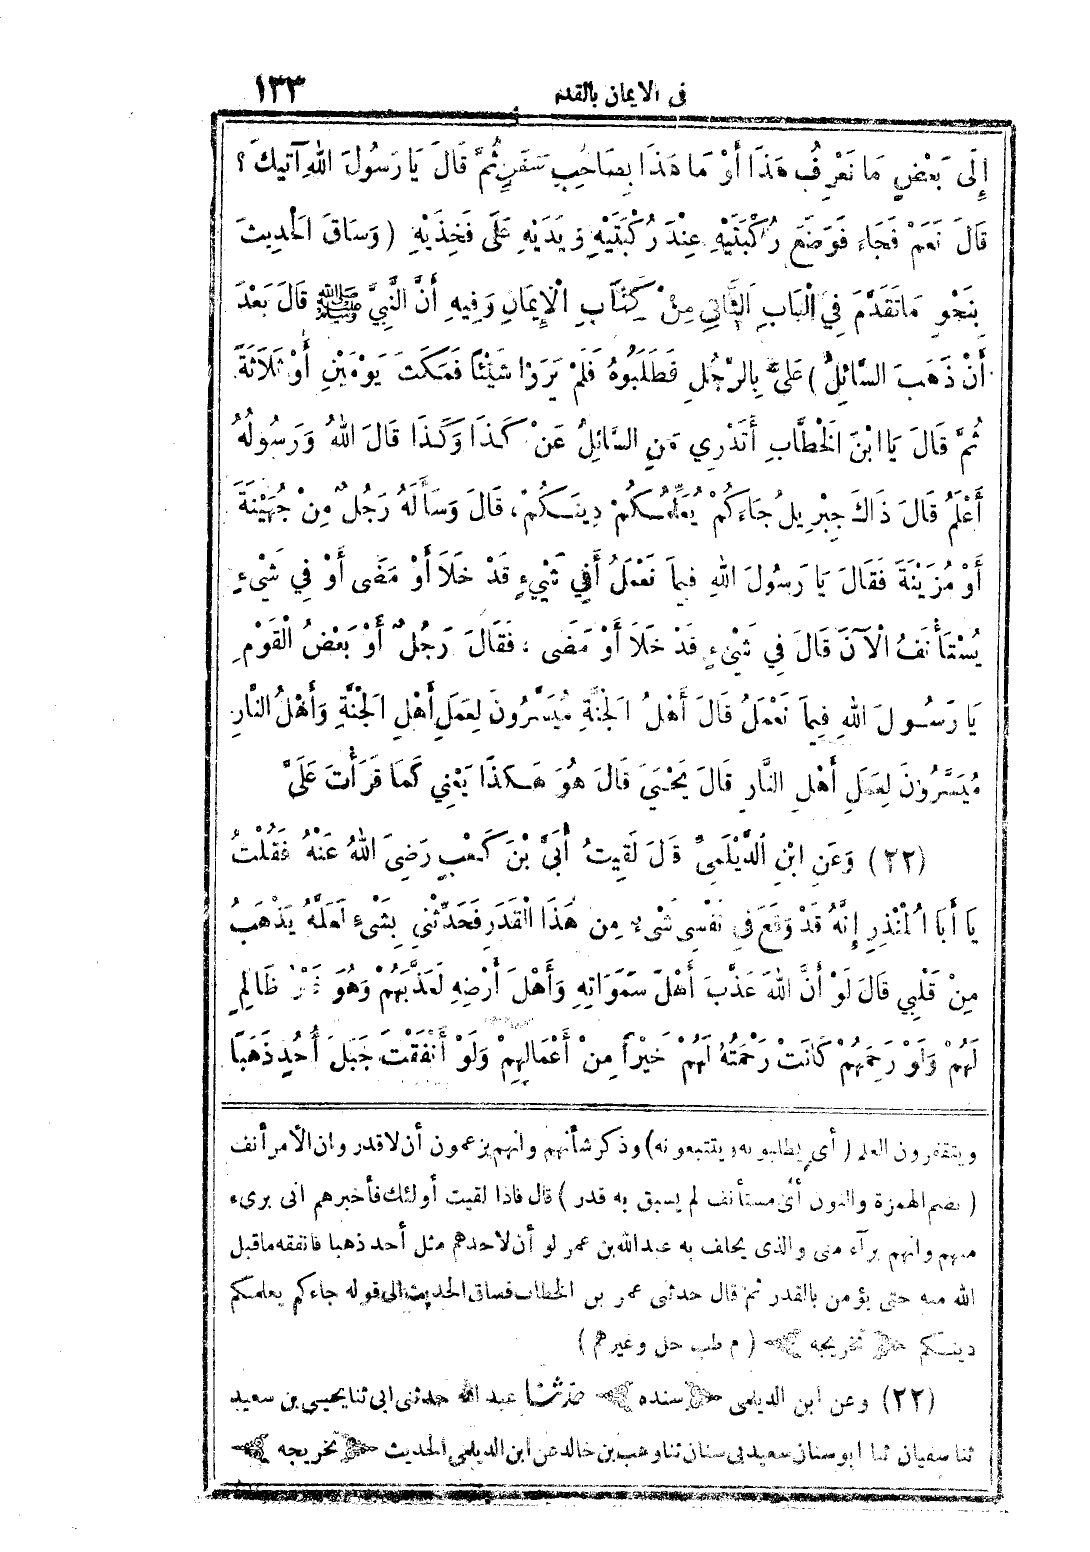 فى الايمان بالقدر ١٣٣
إِلَى بَعْضٍ مَا نَعْرِفُ هَذَا أَوْ مَا هَذَا بِصَاحِبِ سَفَرٍ ثُمَّ قَالَ يَا رَسُولَ اللهِ آتِيكَ ؟
قَالَ نَعَمْ فَجَاءَ فَوَضَعَ رُكْبَتَيْهِ عِنْدَ رُكْبَتَيْهِ وَيَدَيْهِ عَلَى فَخِذَيْهِ (وَسَاقَ الْحَدِيثَ
بِنَحْوِ مَاتَقَدَّمَ فِي الْبَابِ الثَّانِي مِنْ كِتَابِ الْإِيمَانِ وَفِيهِ أَنَّ النَّبِيَّ ﷺ قَالَ بَعْدَ
أَنْ ذَهَبَ السَّائِلُ) عَلَىَّ بِالرَّجُلِ فَطَلَبُوهُ فَلَمْ يَرَوْا شَيْئًا فَمَكَثَ يَوْمَيْنِ أَوْ ثَلَاثَةً
ثُمَّ قَالَ يَا ابْنَ الْخَطَّابِ أَتَدْرِي مَنِ السَّائِلُ عَنْ كَذَا وَكَذَا قَالَ اللهُ وَرَسُولُهُ
أَعْلَمُ قَالَ ذَاكَ جِبْرِيلُ جَاءَكُمْ يُعَلِّمُكُمْ دِينَكُمْ، قَالَ وَسَأَلَهُ رَجُلٌ مِنْ جُهَيْنَةَ
أَوْ مُزَيْنَةَ فَقَالَ يَا رَسُولَ اللهِ فِيمَا نَعْمَلُ أَفِي شَيْءٍ قَدْ خَلَا أَوْ مَضَى أَوْ فِي شَيْءٍ
يُسْتَأْنَفُ الْآنَ قَالَ فِي شَيْءٍ قَدْ خَلَا أَوْ مَضَى ، فَقَالَ رَجُلٌ أَوْ بَعْضُ الْقَوْمِ
يَا رَسُولَ اللهِ فِيمَا نَعْمَلُ قَالَ أَهْلُ الْجَنَّةِ مُيَسَّرُونَ لِعَمَلِ أَهْلِ الْجَنَّةِ وَأَهْلُ النَّارِ
مُيَسَّرُونَ لِعَمَلِ أَهْلِ النَّارِ قَالَ يَحْيَى قَالَ هُوَ هَكَذَا يَعْنِي كَمَا قَرَأْتَ عَلَىَّ
(٢٢) وَعَنِ ابْنِ الدَّيْلَمِىِّ قَالَ لَقِيتُ أُبَىَّ بْنَ كَعْبٍ رَضِىَ اللهُ عَنْهُ فَقُلْتُ
يَا أَبَا الْمُنْذِرِ إِنَّهُ قَدْ وَقَعَ فِي نَفْسِى شَىْءٌ مِنْ هَذَا الْقَدَرِ فَحَدِّثْنِي بِشَىْءٍ لَعَلَّهُ يَذْهَبُ
مِنْ قَلْبِي قَالَ لَوْ أَنَّ اللهَ عَذَّبَ أَهْلَ سَمَوَاتِهِ وَأَهْلَ أَرْضِهِ لَعَذَّبَهُمْ وَهُوَ غَيْرُ ظَالِمٍ
لَهُمْ وَلَوْ رَحِمَهُمْ كَانَتْ رَحْمَتُهُ لَهُمْ خَيْرًا مِنْ أَعْمَالِهِمْ وَلَوْ أَنْفَقْتَ جَبَلَ أُحُدٍ ذَهَبًا
ويتقفرون العلم (أى يطلبونه ويتتبعونه) وذكر شأنهم وانهم يزعمون أن لاقدر وان الأمر أنف
(بضم الهمزة والنون أى مستأنف لم يسبق به قدر) قال فاذا لقيت أولئك فأخبرهم انى برىء
منهم وانهم برآء منى والذى يحلف به عبد الله بن عمر لو أن لاحدهم مثل أحد ذهبا فانفقه ماقبل
الله منه حتى يؤمن بالقدر ثم قال حدثنى عمر بن الخطاب فساق الحديث الى قوله جاءكم يعلمكم
دينكم ﴿تخريجه﴾ (م طب حل وغيرهم)
(٢٢) وعن ابن الديلمى ﴿سنده﴾ حدثنا عبد الله حدثنى ابى ثنا يحيى بن سعيد
ثنا سفيان ثنا ابوسنان سعيد بن سنان ثنا وهب بن خالد عن ابن الديلمى الحديث ﴿تخريجه﴾